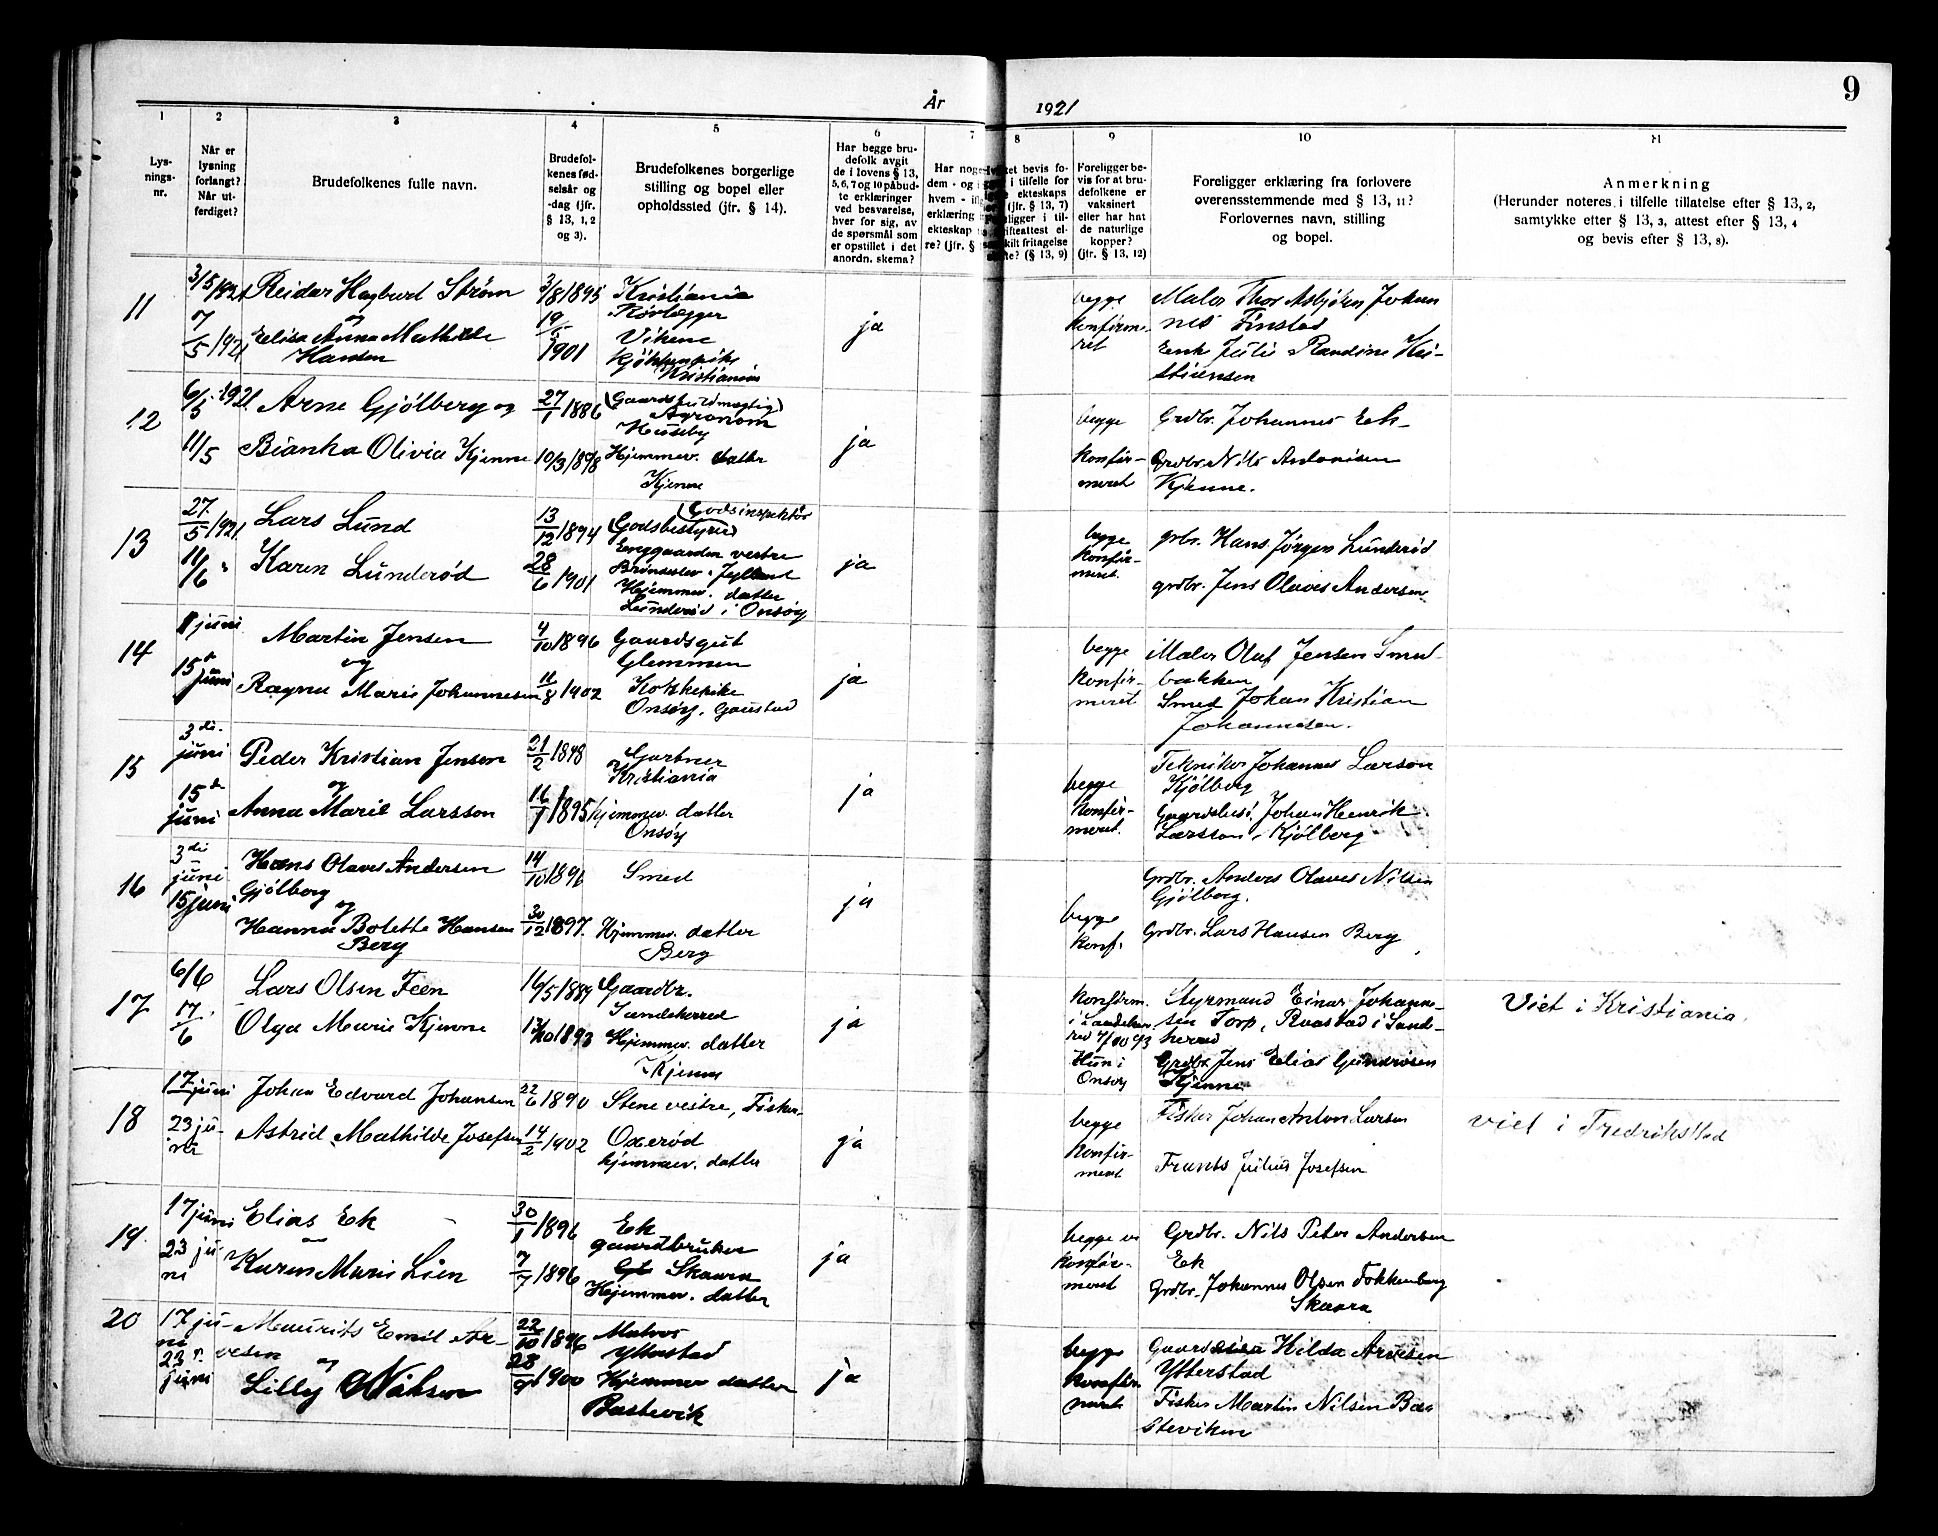 9
År 1921
1
Lys-
nings-
nr.
2
Når er
lysning
forlangt?
Når ut-
ferdiget?
3
Brudefolkenes fulle navn.
4
Brudefol-
kenes fød-
selsår og
-dag (jfr.
§ 13, 1, 2
og 3).
5
Brudefolkenes borgerlige
stilling og bopel eller
opholdssted (jfr. § 14).
6
Har begge bru-
defolk avgit
de i lovens § 13,
5, 6, 7 og 10 påbud-
te erklæringer
ved besvarelse,
hver for sig, av
de spørsmål som
er opstillet i det
anordn. skema?
7
Har noge
dem - og i
hvem - if
erklæring
ekteskap
re? (jfr. §
8
et bevis fo-
i tilfelle for
ekteskaps
(jfr. § 13, 7)
ligger i til-
ifteattest el-
kilt fritagelse
te? (§ 13, 9)
9
Foreligger be-
vis for at bru-
defolkene er
vaksinert
eller har hat
de naturlige
kopper?
(jfr. § 13, 12)
10
Foreligger erklæring fra forlovere
overensstemmende med § 13, 11?
Forlovernes navn, stilling
og bopel.
11
Anmerkning
(Herunder noteres i tilfelle tillatelse efter § 13, 2,
samtykke efter § 13, 3, attest efter § 13, 4
og bevis efter § 13, 8).
11
3/5 1921
7/5 1921
Reidar Hagbart Strøm
og
Elisa Anna Mathilde
Hansen
3/8 1895
19/5
1901
Kristiania
Rørlegger
Vikene
Kjøkkenpike
Kristiania
ja
begge
konfirme-
ret
Maler Thor Asbjørn Johan
nes Finstad
Enk Julie Randine Kri-
stiensen
12
6/5 1921
11/5
Arne Gjølberg og
Bianka Olivia Kjenne
27/7 1886
10/3 1898
(Gaardsfuldmægtig)
Agronom
Huseby
Hjemmev. datter
Kjenne
ja
begge
konfir-
meret
Grdbr. Johannes Ek
Grdbr. Nils Antonisen
Kjenne.
13
27/5 1921
11/6
Lars Lund
Karen Lunderød
13/12 1894
28/6 1901
(Godsinspektør
(Godsbestyrer)
Enggaarden vestre
Brønderslev Jylland
Hjemmev. datter
Lunderød i Onsøy
ja
begge
konfir-
meret.
grbr. Hans Jørgen Lunderød
grdbr. Jens Olaves Andersen
14
8 juni
15de juni
Martin Jensen
og
Ragna Marie Johannesen
4/10 1896
11/8 1902
Gaardsgut
Glemmen
Kokkepike
Onsøy, Gaustad
ja
begge
konfir-
meret
Maler Olaf Jensen Smed
bakken
Smed Johan Kristian
Johannesen.
15
3die
juni
15de
juni
Peder Kristian Jensen
og
Anna Marie Larsson
21/2 1898
16/7 1895
Gartner
Kristiania
hjemmev. datter
Onsøy
ja
begge
konfir-
meret.
Tekniker Johannes Larson
Kjølberg
Johan Henrik
Larsson, Kjølberg
16
3die
juni
15 juni
Hans Olaves Andersen
Gjølberg
og
Hanna Bolette Hansen
Berg
14/10 1896
30/12 1897.
Smed
Hjemmev. datter
Berg
ja
begge
konf.
Grdbr. Anders Olaves Nilsen
Gjølberg.
Grdbr. Lars Hansen Berg
17
6/6
17/6
Lars Olsen Feen
Olga Marie Kjenne
16/5 1889
13/10 1893
Gaardbr.
Sandeherred
Hjemmev. datter
Kjenne
ja
konfirm.
i Sandeher
red
Hun i
Onsøy
Styrmand Einar Johanne-
sen Torp, Raastad i Sand-
herred
Grdbr. Jens Elias Gundersen
Kjenne
Viet i Kristiania.
18
17 juni
23 ju-
ni
Johan Edvard Johansen
Astrid Mathilde Josefsen
22/6 1890
14/2 1902
Stene vestre, Fisker
Oxerød
hjemmev. datter
ja
begge
konfir-
meret
Fisker Johan Anton Larsen
Frants Julius Josefsen
viet i Fredrikstad
19.
17 juni
23 ju-
ni
Elias Ek
Karen Marie Lien
30/1 1896
7/7 1896
Ek
gaardbruker
Skaara
Hjemmev. datter
ja
begge er
konfir-
meret
Grdbr. Nils Peter Andersen
Ek
Grdbr. Johannes Olsen Fokkenborg
Skaara
20
17 ju-
ni
23
juni
Maurits Emil Ar-
vesen
og
Lilly Nilsen
22/10 1896
28/9 1900
Matros
Ytterstad
Hjemmev datter
Bastevik
ja
begge
konfir-
meret
Hilda Arvesen
Ytterstad
Fisker Martin Nilsen Ba-
steviken